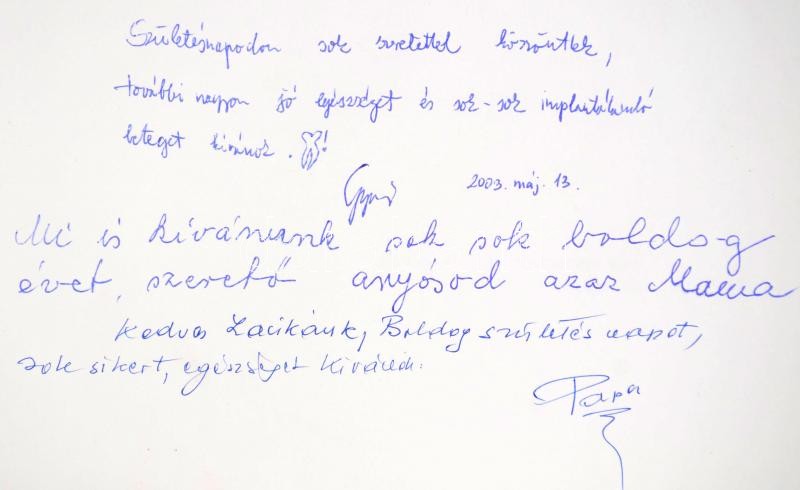 Születésnapodon sok szeretettel köszöntlek,
további nagyon jó egészséget és sok-sok implantálandó
beteget kívánok. !
2003. máj. 13.
Mi is kívánunk sok sok boldog
évet, szerető anyósod azaz Mama
Kedves Lacikánk, Boldog születés napot,
sok sikert, egészséget kíván:
Papa